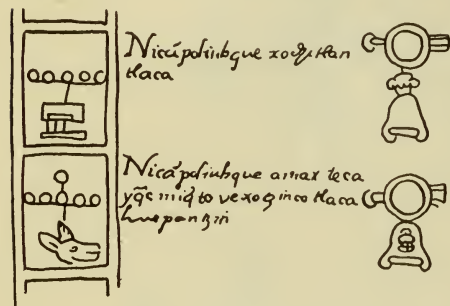 Nicā poliuhque xochitlan
tlaca
Nicā poliuhque amax teca
yq̄c miq̄to vexoginco tlaca